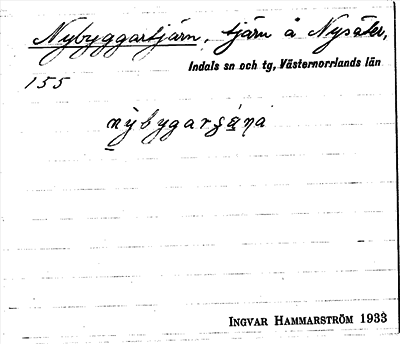 Nybyggartjärn, tjärn å Nysäter,
Indals sn och tg, Västernorrlands län
155
INGVAR HAMMARSTRÖM 1933